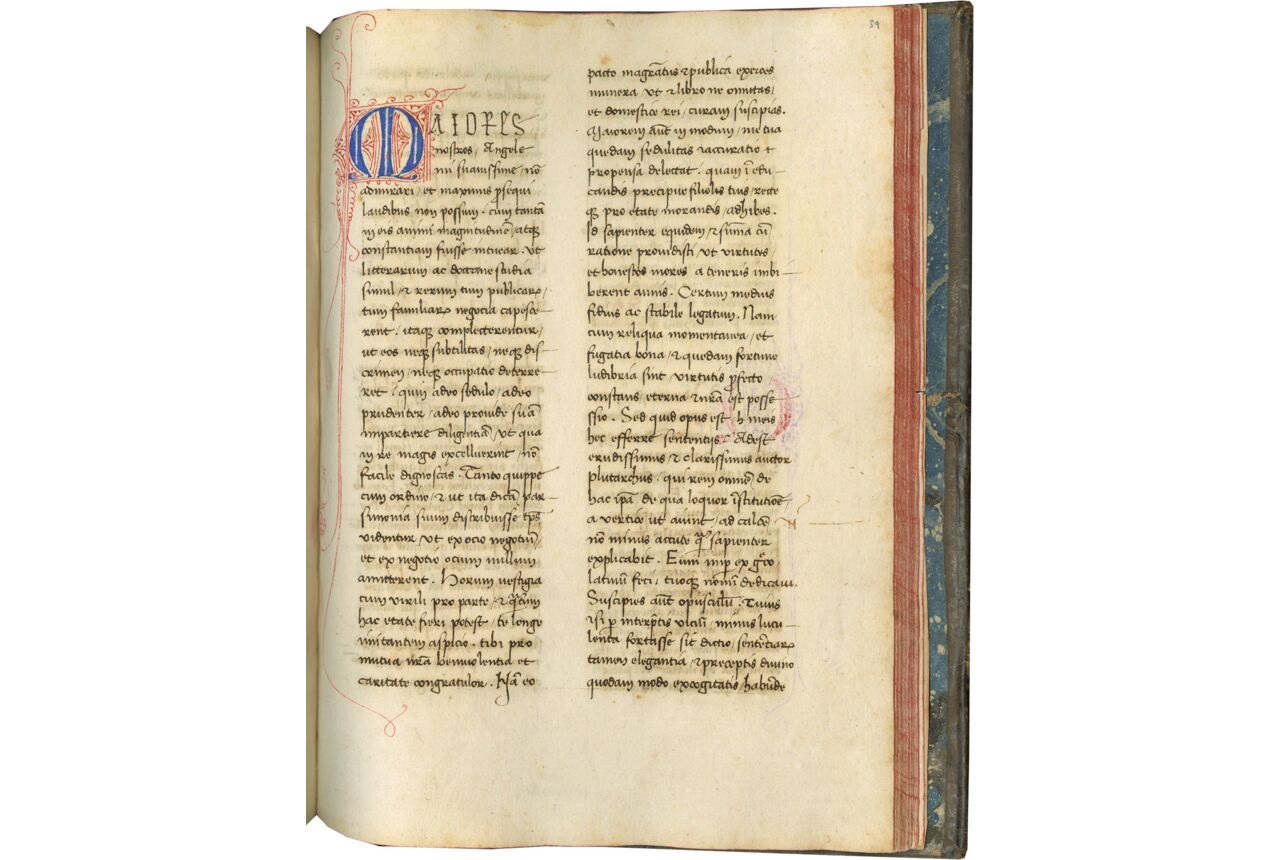 39
MAIORES
nostros, Angele
mi suauissime, nō
admirari, et maximis ꝓsequi
laudibus non possum. cum tantā
in eis animi magnitudinē, atqꝫ
constantiam fuisse intuear. vt
litterarum ac doctrine studia
simul, ⁊ rerum tum publicaꝝ,
tum familiaꝝ negocia capesce-
rent. itaqꝫ complecterentur,
ut eos neqꝫ subtilitas, neqꝫ dis-
crimen, neqꝫ occupatio deterre-
ret. quin adeo sedulo, adeo
prudenter, adeo prouide suā
impartiere diligentiā, vt qua
in re magis excelluerint, nō
facile dignoscas. Tanto quippe
cum ordine, ⁊ ut ita dicā par-
simonia suum distribuisse tp̄s
videntur, vt ex ocio negotiū,
et ex negotio ocium nullum
amitterent. Horum vestigia
cum virili pro parte, ⁊ qͣꝫtum
hac etate fieri potest, te longe
imitantem aspicio. tibi pro
mutua nr̄a beniuolentia et
caritate congratulor. Nā eo
pacto magrātus ⁊ publica exerces
munera vt ⁊ libro ne omittas,
et domestice rei, curam suscipias.
Maiorem aūt in modum, me tua
quedam sedulitas ⁊ accuratio ⁊
propensa delectat. quam ī edu-
candis precipue filiolis tuis, recte
qꝫ pro etate morandis, adhibes.
Id sapienter equidem ⁊ sūma cū
ratione prouidisti, vt virtutes,
et honestos mores a teneris imbi-
berent annis. Certum medius
fidius ac stabile legatum. Nam
cum reliqua momentanea, et
fugatia bona, ⁊ quedam fortune
ludibria sint, virtutis ꝓfecto
constans eterna ⁊ nr̄a est posse
ssio. Sed quid opus est h meis
hec efferre sententiis? Adest
erudissimus ⁊ clarissimus auctor
plutarchus. qui rem omnē de
hac ip̄a de qua loquor īstitutione,
a vertice ut aiunt, ad calcē
nō minus accute qͣꝫ sapienter
explicabit. Eum nup̄ ex gͤco,
latinū feci, tuoqꝫ nomī dedicaui.
Suscipies aūt opusculū. Cuius
⁊ si ꝑ interp̄tis vitiū, minus lucu-
lenta fortasse sit dictio, sentētiaꝝ
tamen elegantia, ⁊ preceptis diuino
quodam modo excogitatis, habūde